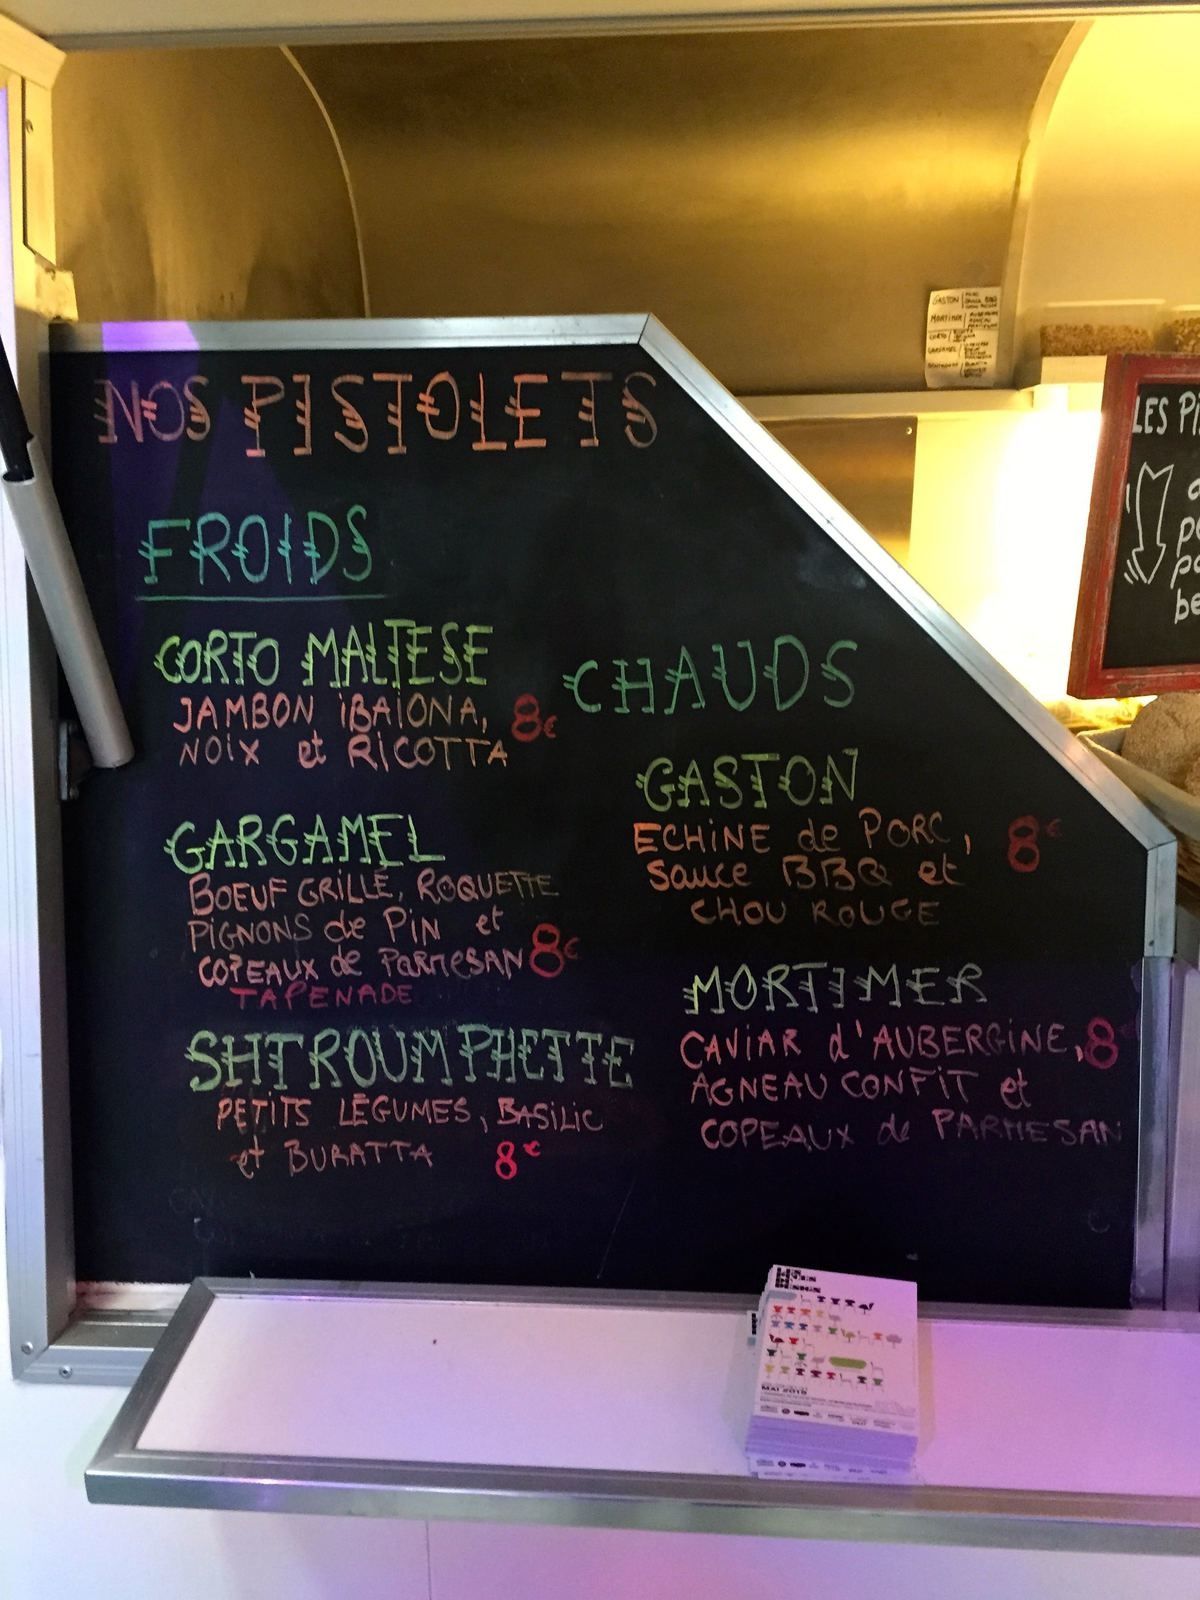 NOS PISTOLETS
FROIDS
CORTO MALTESE
JAMBON IBAIONA, 8€
NOIX et RICOTTA
GARGAMEL
BOEUF GRILLÉ, ROQUETTE
PIGNONS de PIN et
COPEAUX de PARMESAN 8€
TAPENADE
SHTROUMPHETTE
PETITS LÉGUMES, BASILIC
et BURATTA 8€
CHAUDS
GASTON
ECHINE de PORC, 8€
Sauce BBQ et
CHOU ROUGE
MORTIMER
CAVIAR d'AUBERGINE, 8€
AGNEAU CONFIT et
COPEAUX de PARMESAN
GASTON
MORTIMER
CORTO
GARGAMEL
LES PI
be
MAI 2015